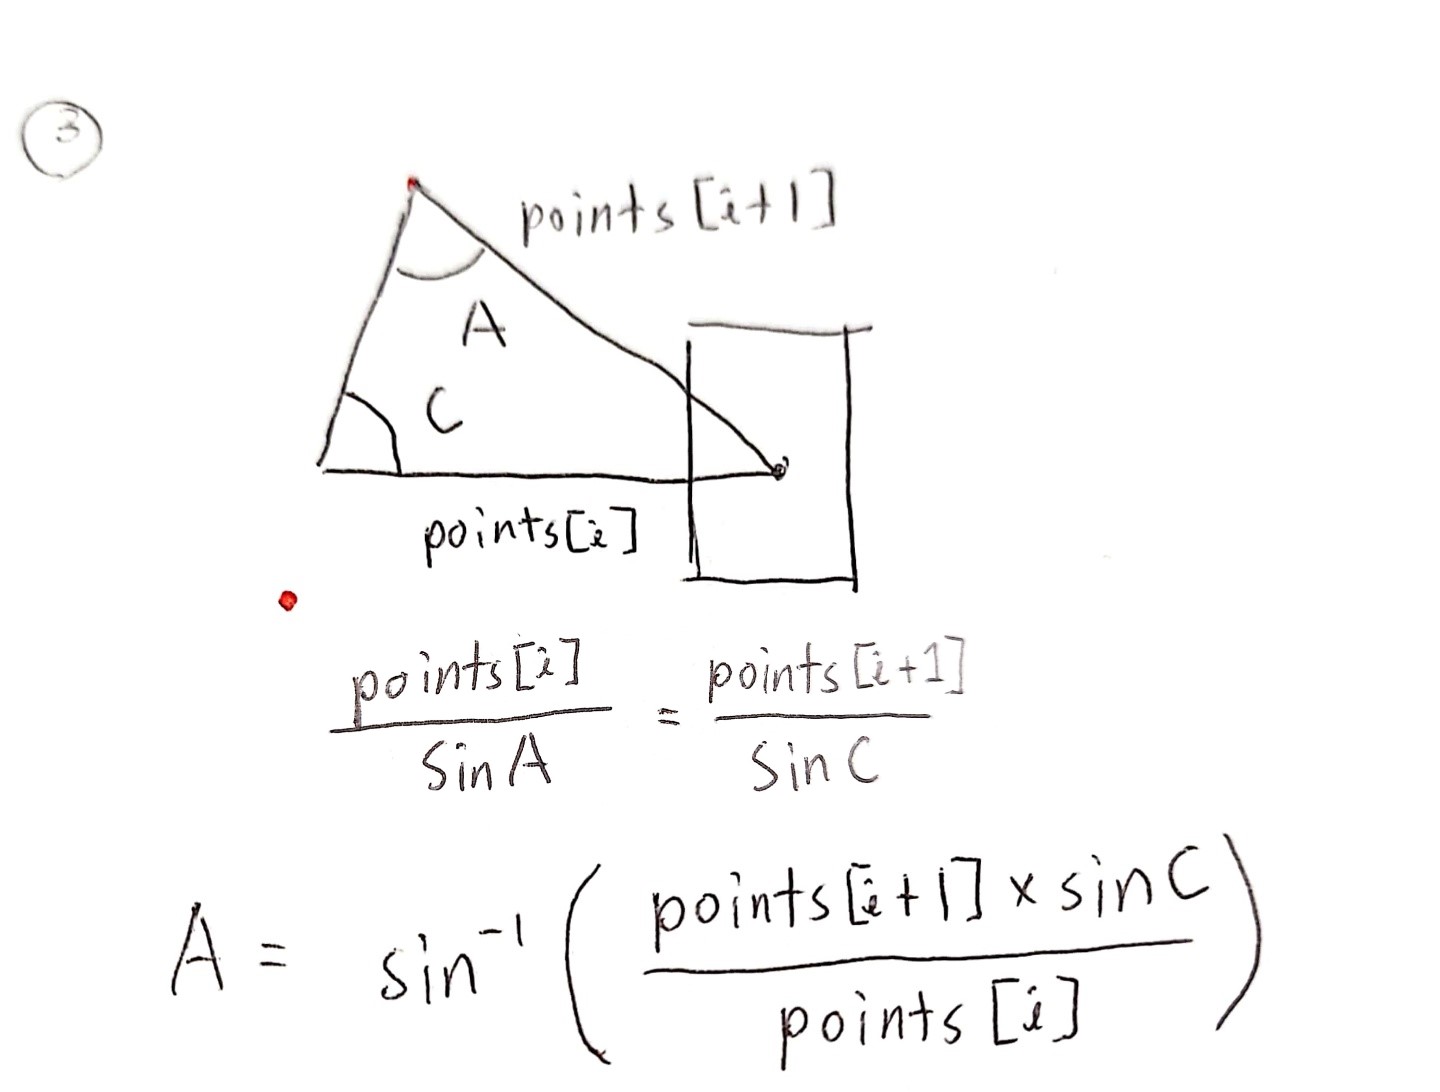 3
points [i+1]
A
C
points[i]
points[i] = points [i+1]
sin A sin C
A = sin⁻¹ ( points [i+1] x sin C
points [i] )